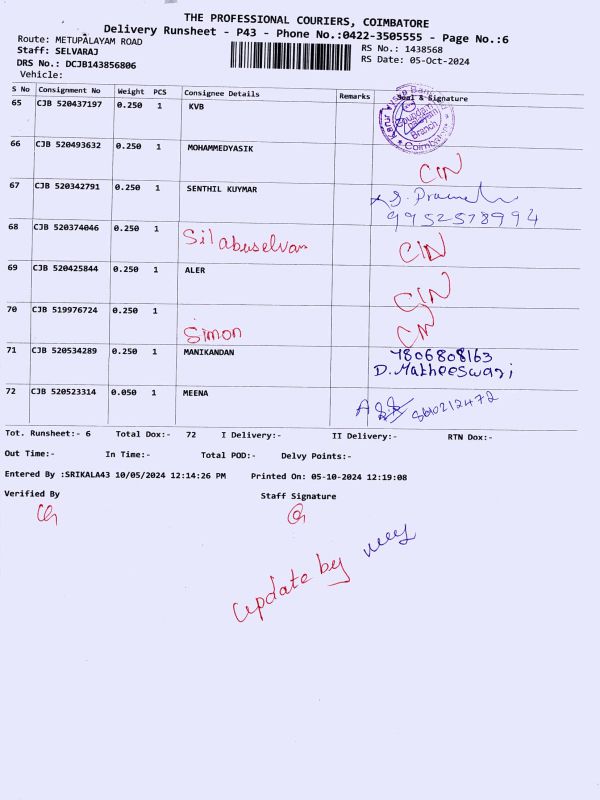 THE PROFESSIONAL COURIERS, COIMBATORE
Delivery Runsheet - P43 - Phone No.:0422-3505555 - Page No.:6
Route: METUPALAYAM ROAD
RS No.: 1438568
Staff: SELVARAJ
RS Date: 05-Oct-2024
DRS No.: DCJB143856806
Vehicle:
S No Consignment No Weight PCS Consignee Details Remarks Seal & Signature
65 CJB 520437197 0.250 1 KVB
Branch
Coimbatore
66 CJB 520493632 0.250 1 MOHAMMEDYASIK CIN
67 CJB 520342791 0.250 1 SENTHIL KUYMAR
9952578994
68 CJB 520374046 0.250 1 Silabuselvan CIN
69 CJB 520425844 0.250 1 ALER CIN
70 CJB 519976724 0.250 1 Simon CIN
71 CJB 520534289 0.250 1 MANIKANDAN 7806808163
D. Matheeswari
72 CJB 520523314 0.050 1 MEENA
Tot. Runsheet:- 6 Total Dox:- 72 I Delivery:- II Delivery:- RTN Dox:-
Out Time:- In Time:- Total POD:- Delvy Points:-
Entered By :SRIKALA43 10/05/2024 12:14:26 PM Printed On: 05-10-2024 12:19:08
Verified By Staff Signature
update by